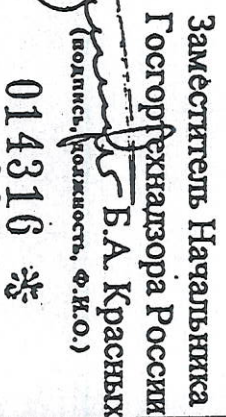 Заместитель Начальника
Госгортехнадзора России
Б.А. Красных
(подпись, должность, Ф.И.О.)
014316 ※